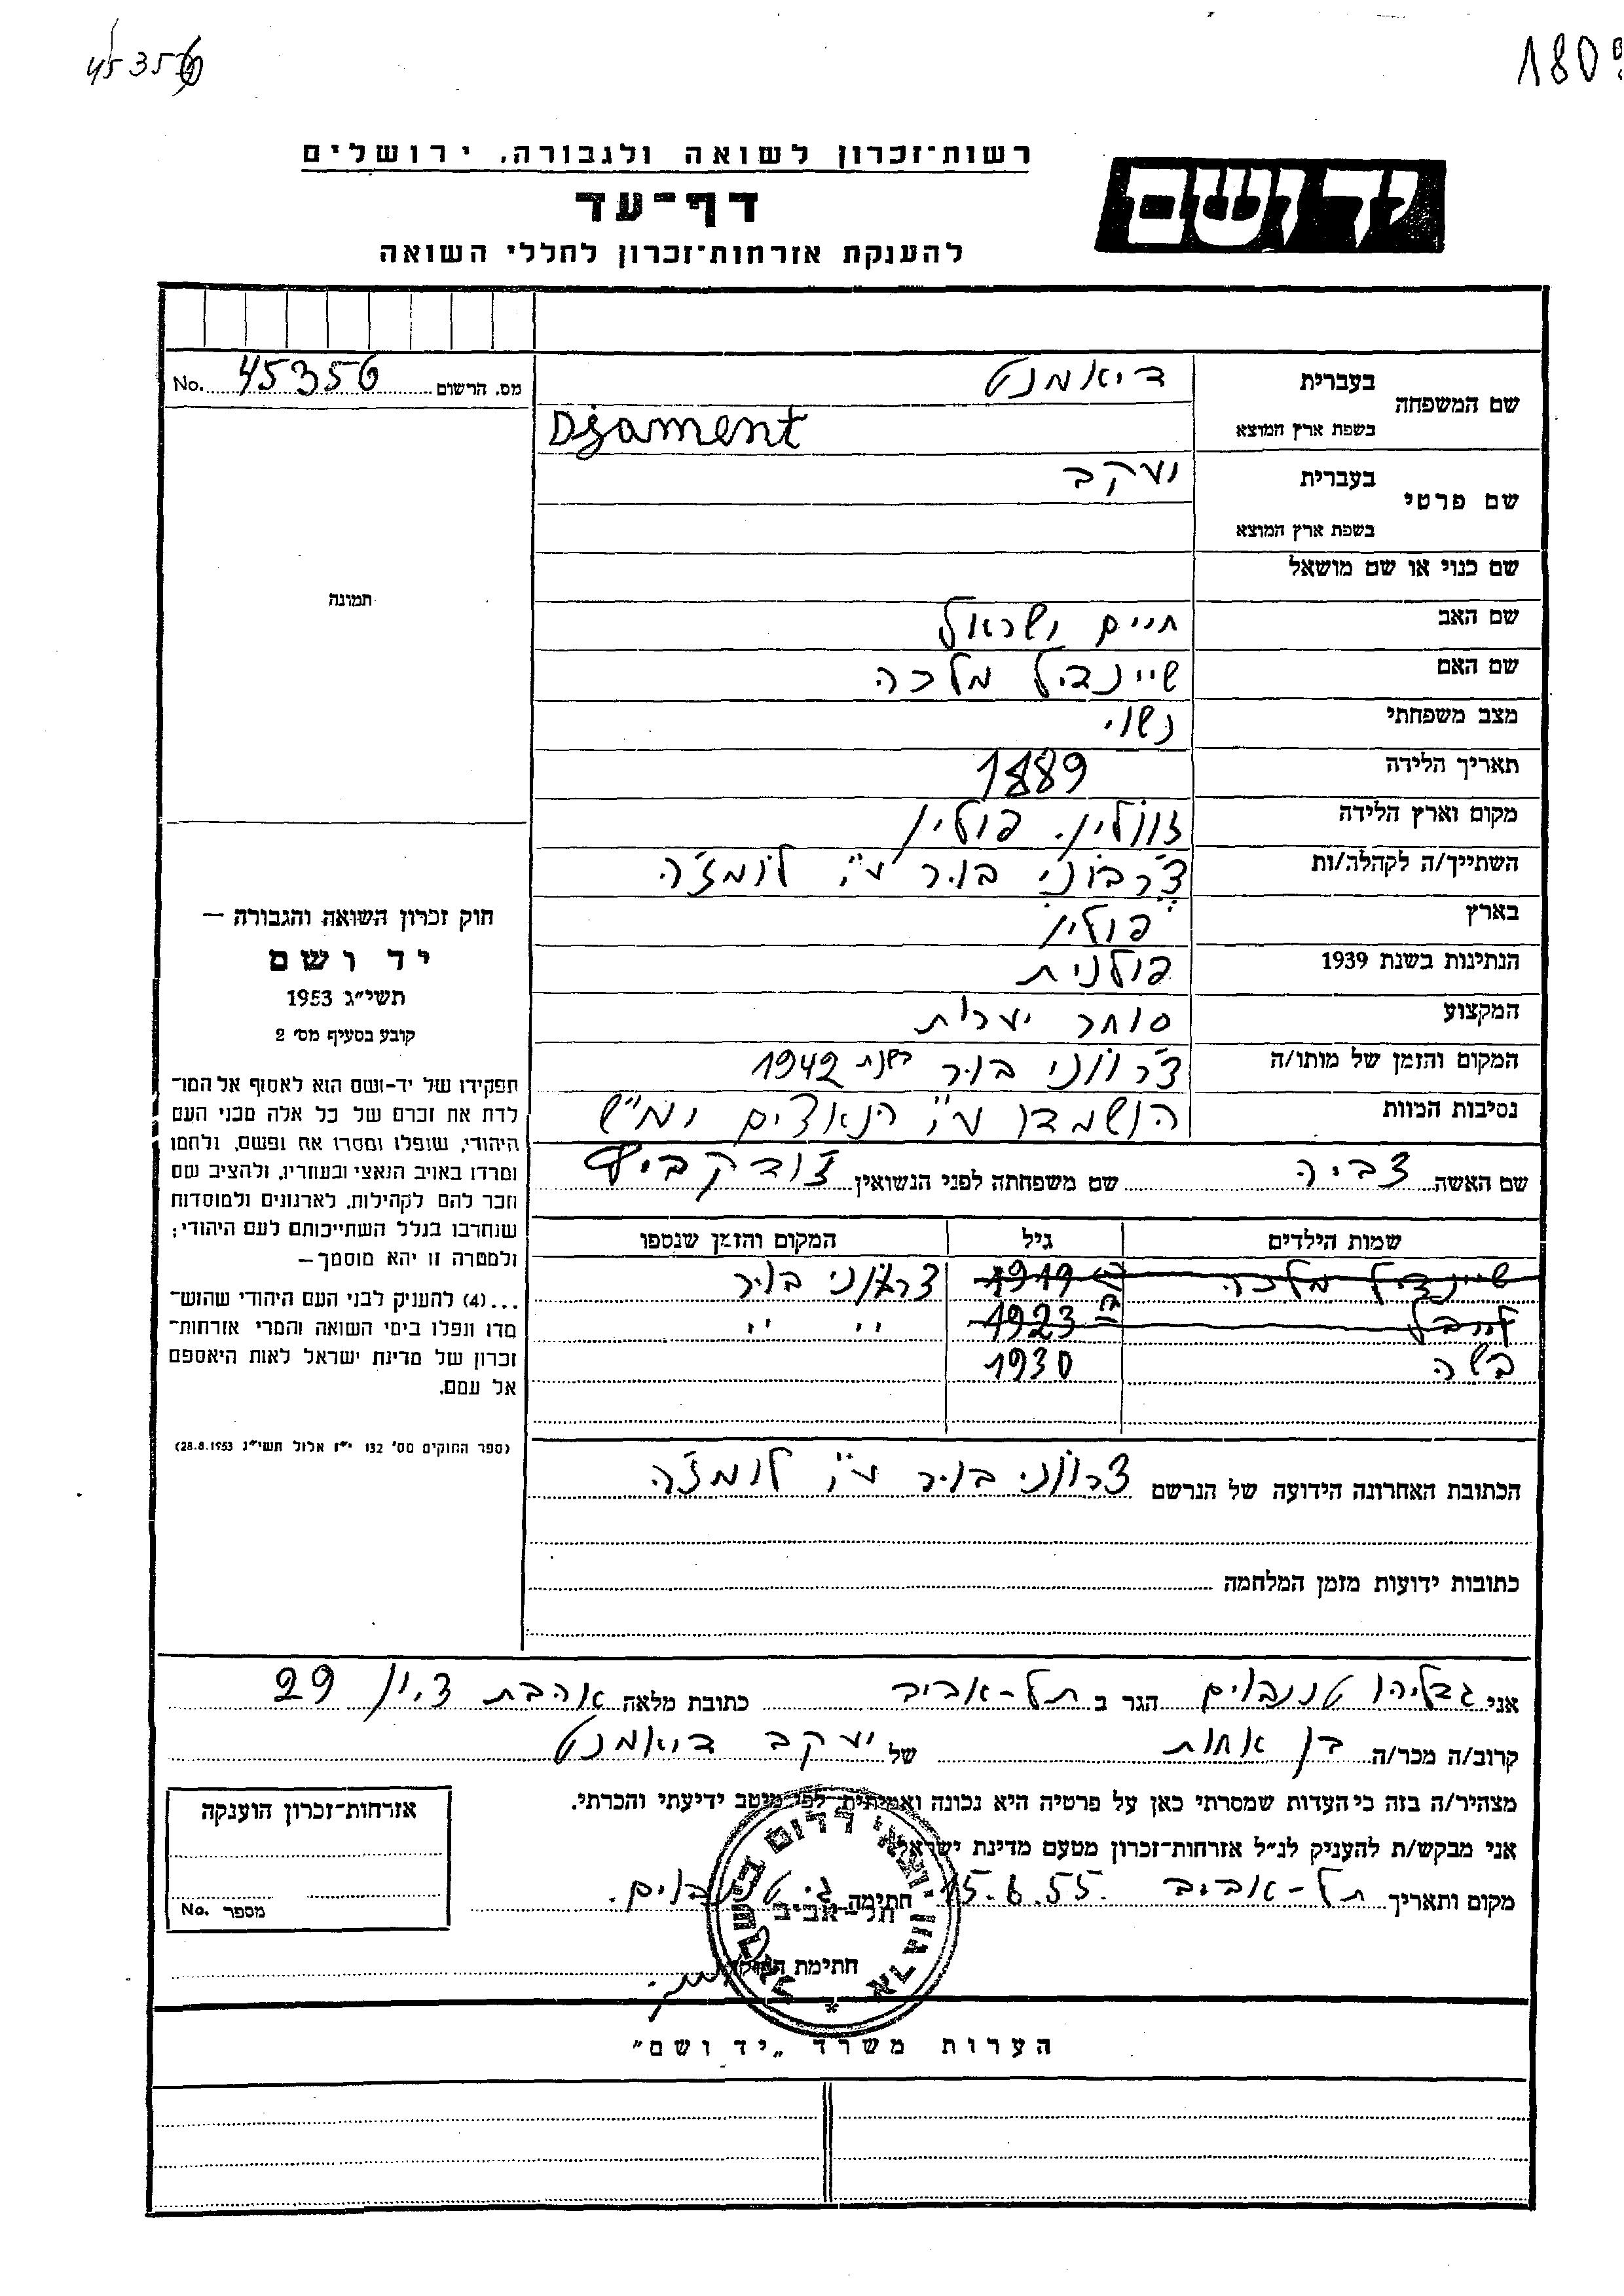 45356
1809
רשות־זכרון לשואה ולגבורה, ירושלים
דף־עד
להענקת אזרחות־זכרון לחללי השואה
יד ושם
מס. הרשום 45356 No.
שם המשפחה
בעברית
דיאמנט
בשפת ארץ המוצא
Djament
שם פרטי
בעברית
יעקב
בשפת ארץ המוצא
שם כנוי או שם מושאל
שם האב חיים ישראל
שם האם שיינדיל מלכה
מצב משפחתי נשוי
תאריך הלידה 1889
מקום וארץ הלידה זוולין. פולין
השתייך/ה לקהלה/ות בור ע"י לומז'ה
בארץ פולין
הנתינות בשנת 1939 פולנית
המקצוע סוחר יערות
המקום והזמן של מותו/ה צ'רווני בור בשנת 1942
נסיבות המוות הושמדו ע"י הנאצים ימ"ש
שם האשה צביה שם משפחתה לפני הנשואין
שמות הילדים גיל המקום והזמן שנספו
שיינדיל מלכה 1919 צרווני בור
לייבל 1923 " "
בשה 1930
הכתובת האחרונה הידועה של הנרשם צרווני בור ע"י לומז'ה
כתובות ידועות מזמן המלחמה
תמונה
חוק זכרון השואה והגבורה —
יד ושם
תשי"ג 1953
קובע בסעיף מס׳ 2
תפקידו של יד-ושם הוא לאסוף אל המו־
לדת את זכרם של כל אלה מבני העם
היהודי, שנפלו ומסרו את נפשם, נלחמו
ומרדו באויב הנאצי ובעוזריו, ולהציב שם
וזכר להם לקהילות, לארגונים ולמוסדות
שנחרבו בגלל השתייכותם לעם היהודי;
ולמטרה זו יהא מוסמך—
...(4) להעניק לבני העם היהודי שהוש־
מדו ונפלו בימי השואה והמרי אזרחות־
זכרון של מדינת ישראל לאות היאספם
אל עמם.
(ספר החוקים מס׳ 132 י"ז אלול תשי"ג 28.8.1953)
אני גדליהו טננבוים הגר ב תל-אביב כתובת מלאה אהבת ציון 29
קרוב/ה מכר/ה בן אחות של יעקב דיאמנט
מצהיר/ה בזה כי העדות שמסרתי כאן על פרטיה היא נכונה ואמיתית, לפי מיטב ידיעתי והכרתי.
אני מבקש/ת להעניק לנ"ל אזרחות־זכרון מטעם מדינת ישראל
מקום ותאריך תל-אביב 15.6.55 חתימה ג. טננבוים.
חתימת הפוקד
ארגון יוצאי בישראל
תל-אביב
אזרחות־זכרון הוענקה
מספר No.
הערות משרד „יד ושם"